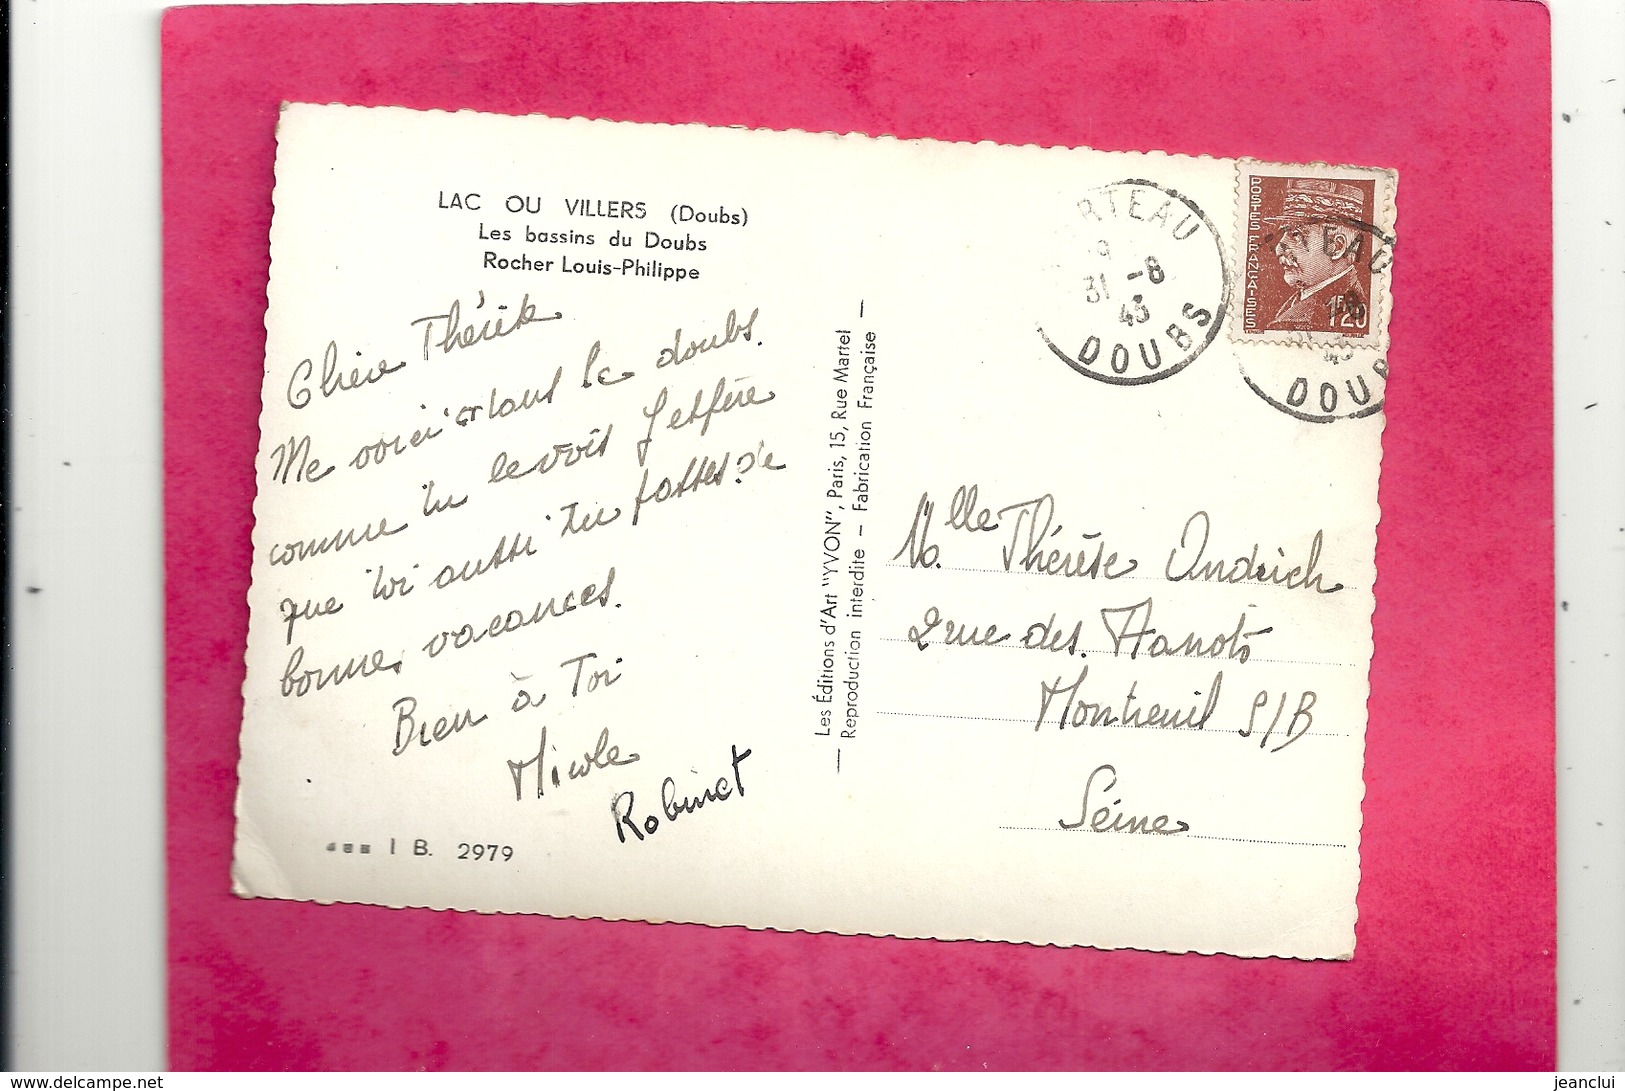 LAC OU VILLERS (Doubs)
Les bassins du Doubs
Rocher Louis-Philippe
Chère Thérèse
Me voici dans le doubs.
comme tu le vois J'espère
que toi aussi tu passes de
bonnes vacances.
Bien à Toi
Nicole
Robinet
I B. 2979
— Les Éditions d'Art "YVON", Paris, 15, Rue Martel —
Reproduction interdite — Fabrication Française
RTEAU
31 -8
43
DOUBS
POSTES FRANÇAISES
1F20
TEAU
DOUB
Melle Thérèse Andrich
2 rue des Hanots
Montreuil S/B
Seine
www.delcampe.net
jeanclui